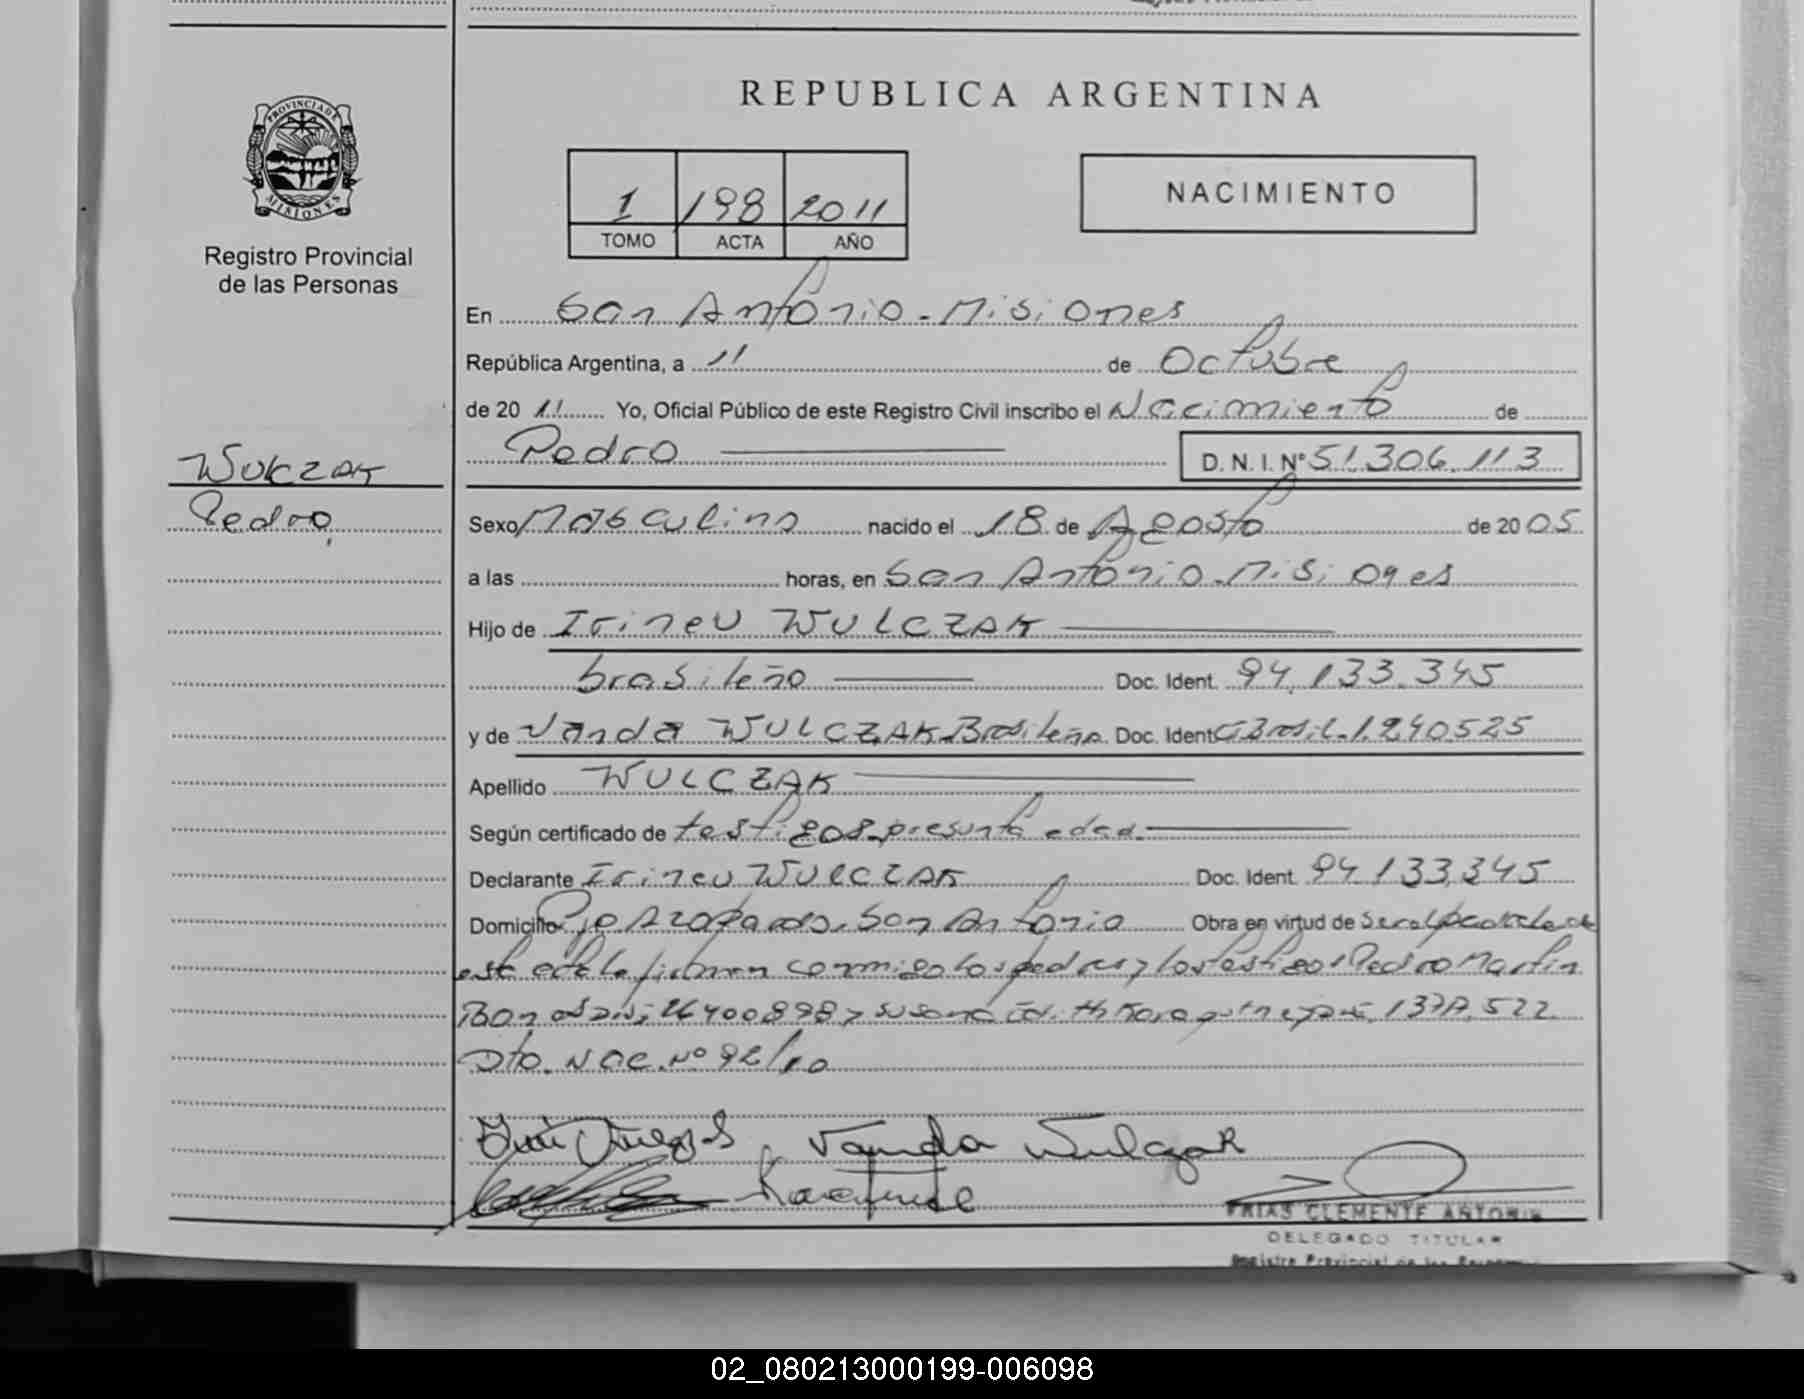 REPUBLICA ARGENTINA
PROVINCIA DE
MISIONES
Registro Provincial
de las Personas
1 198 2011
TOMO ACTA AÑO
NACIMIENTO
En San Antonio - Misiones
República Argentina, a 11 de Octubre
de 20 11 Yo, Oficial Público de este Registro Civil inscribo el Nacimiento de
Pedro D. N. I. Nº 51.306.113
WULCZAK
Pedro
Sexo Masculino nacido el 18 de Agosto de 20 05
a las horas, en San Antonio - Misiones
Hijo de Irineu WULCZAK
brasileño Doc. Ident. 94.133.345
y de Vanda WULCZAK Brasileña Doc. Ident. 1.240525
Apellido WULCZAK
Según certificado de testigos - presunta edad.
Declarante Irineu WULCZAK Doc. Ident. 94.133.345
Domicilio San Antonio Obra en virtud de
firman conmigo los padres y los testigos Pedro Martin
Dto. Nac. Nº 92/10
Vanda Wulczak
FRIAS CLEMENTE ANTONIO
DELEGADO TITULAR
Registro Provincial de las Personas
02_080213000199-006098